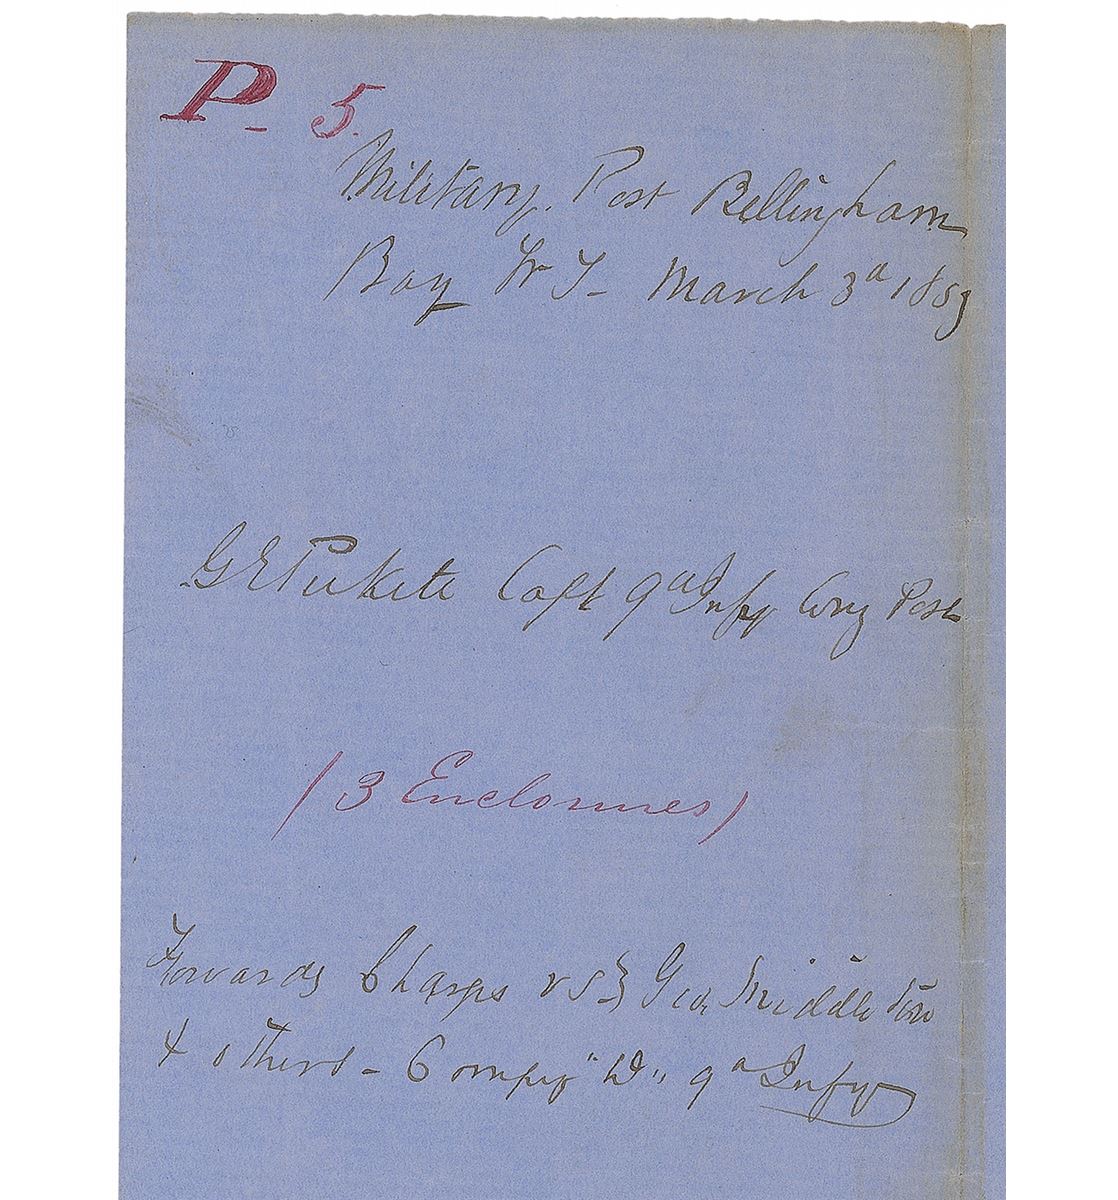 P - 5.
Military Post Bellingham
Bay W T - March 3d 1859
G E Pickett Capt 9th Infy Comg Post
(3 Enclosures)
Forwards Charges vs Geo, Middleton
& others - Compy "D" 9th Infy